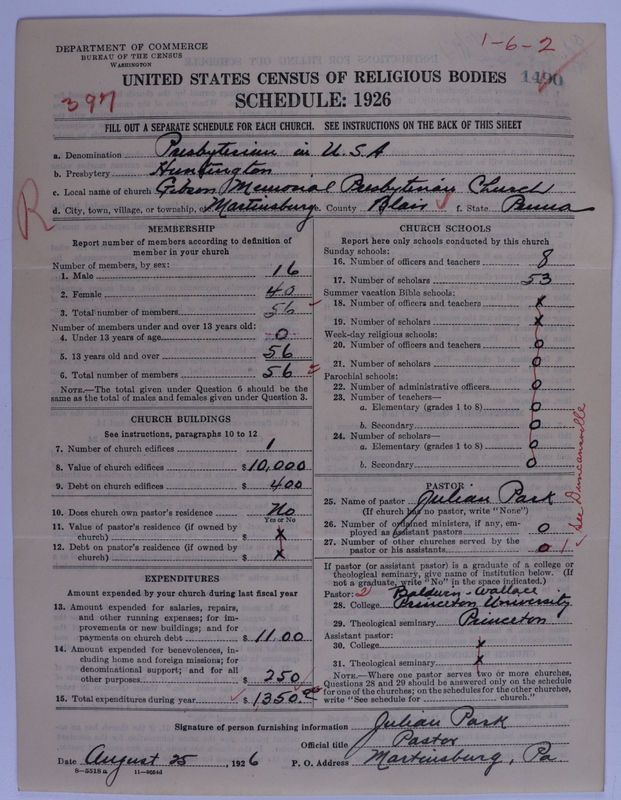 DEPARTMENT OF COMMERCE
BUREAU OF THE CENSUS
WASHINGTON
1-6-2
UNITED STATES CENSUS OF RELIGIOUS BODIES
1490
397
SCHEDULE: 1926
FILL OUT A SEPARATE SCHEDULE FOR EACH CHURCH. SEE INSTRUCTIONS ON THE BACK OF THIS SHEET
a. Denomination Presbyterian in U.S.A
b. Presbytery Huntington
c. Local name of church Gibson Memorial Presbyterian Church
d. City, town, village, or township, Martinsburg e. County Blair f. State Penna
R
MEMBERSHIP
Report number of members according to definition of
member in your church
Number of members, by sex:
1. Male 16
2. Female 40
3. Total number of members 56
Number of members under and over 13 years old:
4. Under 13 years of age 0
5. 13 years old and over 56
6. Total number of members 56
NOTE.—The total given under Question 6 should be the
same as the total of males and females given under Question 3.
CHURCH BUILDINGS
See instructions, paragraphs 10 to 12
7. Number of church edifices 1
8. Value of church edifices $10,000
9. Debt on church edifices $400
10. Does church own pastor's residence? No
Yes or No
11. Value of pastor's residence (if owned by
church) $ x
12. Debt on pastor's residence (if owned by
church) $ x
EXPENDITURES
Amount expended by your church during last fiscal year
13. Amount expended for salaries, repairs,
and other running expenses; for im-
provements or new buildings; and for
payments on church debt $1100
14. Amount expended for benevolences, in-
cluding home and foreign missions; for
denominational support; and for all
other purposes $250
15. Total expenditures during year $1350.00
CHURCH SCHOOLS
Report here only schools conducted by this church
Sunday schools:
16. Number of officers and teachers 8
17. Number of scholars 53
Summer vacation Bible schools:
18. Number of officers and teachers x
19. Number of scholars x
Week-day religious schools:
20. Number of officers and teachers 0
21. Number of scholars 0
Parochial schools:
22. Number of administrative officers 0
23. Number of teachers—
a. Elementary (grades 1 to 8) 0
b. Secondary 0
24. Number of scholars—
a. Elementary (grades 1 to 8) 0
b. Secondary 0
PASTOR
25. Name of pastor Julian Park
(If church has no pastor, write "None")
26. Number of ordained ministers, if any, em-
ployed as assistant pastors 0
27. Number of other churches served by the
pastor or his assistants 0 1
see Duncansville
If pastor (or assistant pastor) is a graduate of a college or
theological seminary, give name of institution below. (If
not a graduate, write "No" in the space indicated.)
Pastor: 2 Baldwin-Wallace
28. College Princeton University
29. Theological seminary Princeton
Assistant pastor:
30. College x
31. Theological seminary x
NOTE.—Where one pastor serves two or more churches,
Questions 28 and 29 should be answered only on the schedule
for one of the churches; on the schedules for the other churches,
write "See schedule for church."
Signature of person furnishing information Julian Park
Official title Pastor
Date August 25, 1926 P. O. Address Martinsburg, Pa
8—5518a